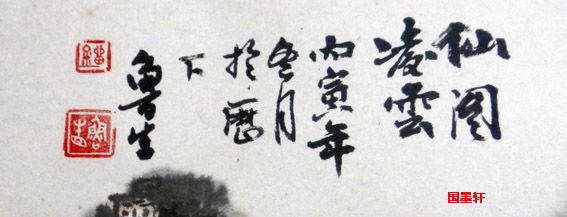 仙阁
凌雲
丙寅年
冬月
於歷
下
魯生
国墨轩